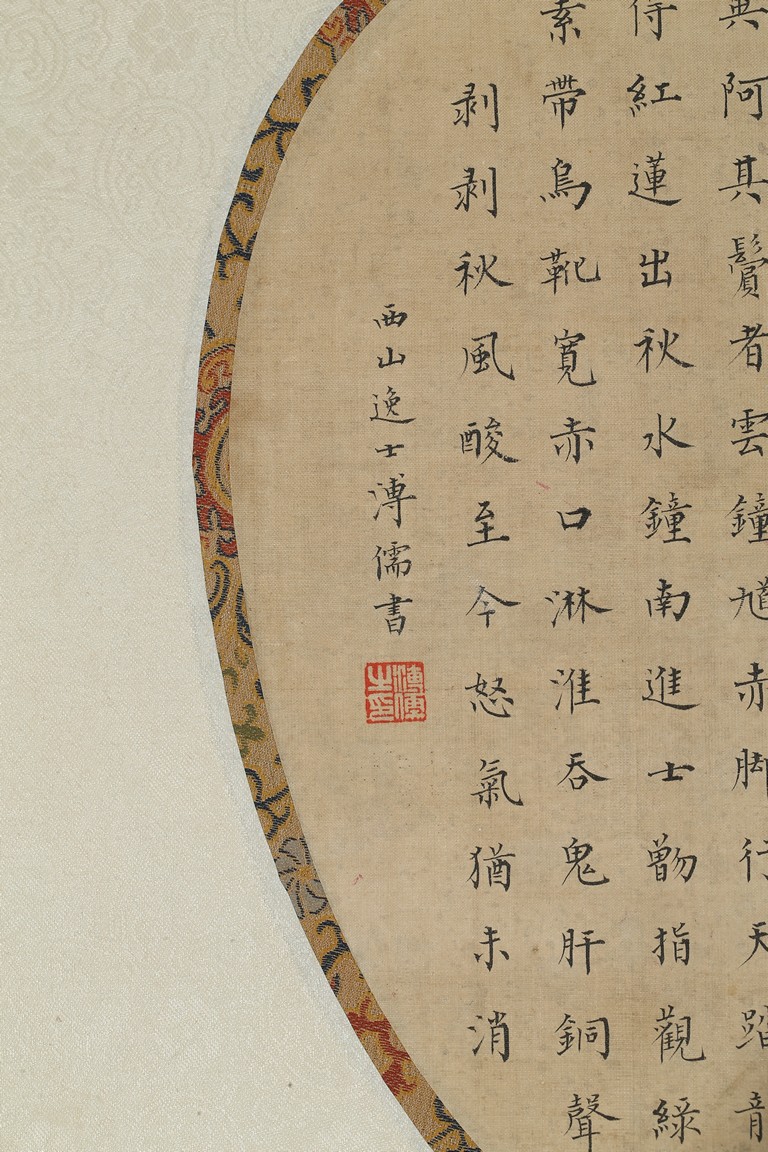 阿其鬢者雲鐘馗赤脚行天踏龍
侍紅蓮出秋水鐘南進士指觀綠
素帶烏靴寬赤口淋淮吞鬼肝銅聲
剥剥秋風酸至今怒氣猶未消
西山逸士溥儒書
溥儒之印